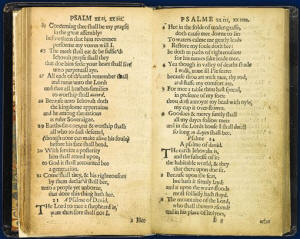 PSALM XXII, XXIII.
25 Concerning thee shall be my prayse
in the great assembly:
before them that him reverence
performe my vowes will I.
26 The meek shall eat & be suffic'd:
Iehovah prayse shall they
that doe him seek: your heart shall live
unto perpetuall aye.
27 All ends of th'earth remember shall
and turne unto the Lord:
and thee all heathen-families
to worship shall accord.
28 Because unto Iehovah doth
the kingdome appertaine:
and he among the nations
is ruler Soveraigne.
29 Earths-fat-ones, eat & worship shall
all who to dust descend,
(though none can make alive his soule)
before his face shall bend.
30 With service a posterity
him shall attend upon;
to God it shall accounted bee
a generation.
31 Come shall they, & his righteousnes
by them declar'd shall bee,
unto a people yet unborne,
that done this thing hath hee.
23 A Psalme of David.
The Lord to mee a shepheard is,
want therefore shall not I.
2 Hee
PSALME XXIII, XXIIII.
2 Hee in the folds of tender-grasse,
doth cause mee downe to lie:
To waters calme me gently leads
3 Restore my soule doth hee:
he doth in paths of righteousnes
for his names sake leade mee.
4 Yea though in valley of deaths shade
I walk, none ill I'le feare:
because thou art with mee, thy rod,
and staffe my comfort are.
5 For mee a table thou hast spread,
in presence of my foes:
thou dost annoynt my head with oyle,
my cup it over-flowes.
6 Goodnes & mercy surely shall
all my dayes follow mee:
and in the Lords house I shall dwell
so long as dayes shall bee.
Psalme 24
A psalme of david.
The earth Iehovahs is,
and the fulnesse of it:
the habitable world, & they
that there upon doe sit.
2 Because upon the seas,
hee hath it firmly layd:
and it upon the water-floods
most sollidly hath stayd
3 The mountaine of the Lord,
who shall thereto ascend?
and in his place of holynes,